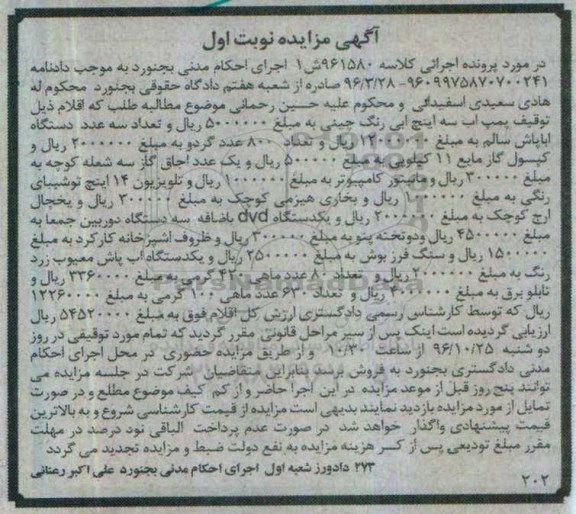 آگهی مزایده نوبت اول
در مورد پرونده اجرائی کلاسه ۹۶۱۵۸۰ش۱ اجرای احکام مدنی بجنورد به موجب دادنامه
۹۶۰۹۹۷۵۸۷۰۷۰۰۲۴۱- ۹۶/۳/۲۸ صادره از شعبه هفتم دادگاه حقوقی بجنورد محکوم له
هادی سعیدی اسفیدانی و محکوم علیه حسین رحمانی موضوع مطالبه طلب که اقلام ذیل
توقیف پمپ آب سه اینچ آبی رنگ چینی به مبلغ ۵۰۰۰۰۰۰ ریال و تعداد سه عدد دستگاه
آبپاش سالم به مبلغ ریال و تعداد ۸۰۰ عدد گردو به مبلغ ۲۰۰۰۰۰۰ ریال و
کپسول گاز مایع ۱۱ کیلویی به مبلغ ۵۰۰۰۰۰ ریال و یک عدد اجاق گاز سه شعله کوچه به
مبلغ ۳۰۰۰۰۰ ریال و مانیتور کامپیوتر به مبلغ ریال و تلویزیون ۱۴ اینچ توشیبای
رنگی به مبلغ ریال و بخاری هیزمی کوچک به مبلغ ۳۰۰۰۰۰ ریال و یخچال
ارج کوچک به مبلغ ۲۰۰۰۰۰۰ ریال و یکدستگاه dvd باضافه سه دستگاه دوربین جمعا به
مبلغ ۴۵۰۰۰۰۰ ریال ودوتخته پتو به مبلغ ۳۰۰۰۰۰ ریال و ظروف آشپزخانه کارکرد به مبلغ
۱۵۰۰۰۰۰ ریال و سنگ فرز بوش به مبلغ ۲۵۰۰۰۰۰ ریال و یکدستگاه آب پاش معیوب زرد
رنگ به مبلغ ۲۰۰۰۰۰۰ ریال و تعداد ۸۰ عدد ماهی ۴۲۰ گرمی به مبلغ ۳۳۶۰۰۰۰ ریال و
تابلو برق به مبلغ ریال و تعداد ۶۳۰ عدد ماهی ۱۰۰ گرمی به مبلغ ۱۲۲۶۰۰۰۰
ریال که توسط کارشناس رسمی دادگستری ارزش کل اقلام فوق به مبلغ ۵۴۵۲۰۰۰۰ ریال
ارزیابی گردیده است اینک پس از سیر مراحل قانونی مقرر گردید که تمام مورد توقیفی در روز
دو شنبه ۹۶/۱۰/۲۵ از ساعت ۱۰/۳۰ و از طریق مزایده حضوری در محل اجرای احکام
مدنی دادگستری بجنورد به فروش برسد بنابراین متقاضیان شرکت در جلسه مزایده می
توانند پنج روز قبل از موعد مزایده در این اجرا حاضر و از کم کیف موضوع مطلع و در صورت
تمایل از مورد مزایده بازدید نمایند بدیهی است مزایده از قیمت کارشناسی شروع و به بالاترین
قیمت پیشنهادی واگذار خواهد شد در صورت عدم پرداخت الباقی نود درصد در مهلت
مقرر مبلغ تودیعی پس از کسر هزینه مزایده به نفع دولت ضبط و مزایده تجدید می گردد
۲۷۳ دادورز شعبه اول اجرای احکام مدنی بجنورد علی اکبر رعنائی
۲۰۲